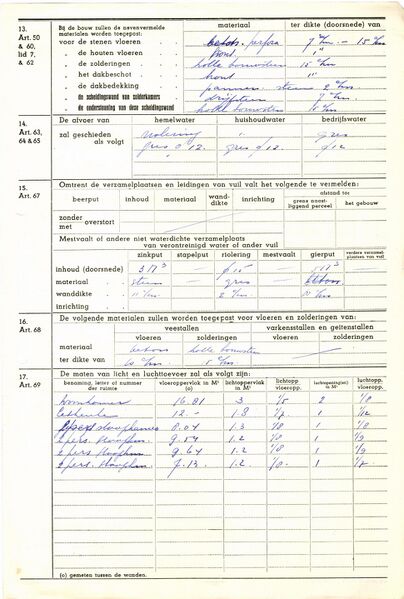 13. Bij de bouw zullen de nevenvermelde materiaal ter dikte (doorsnede) van
Art. 50 materialen worden toegepast:
& 60, voor de stenen vloeren perfora 7 cm. - 15 cm
lid 7, de houten vloeren hout "
& 62 de zolderingen holle bouwsteen 15 cm
het dakbeschot hout "
de dakbedekking pannen
de scheidingswand van zolderkamers drijfsteen
de ondersteuning deze scheidingswand holle bouwsteen
14. De afvoer van hemelwater huishoudwater bedrijfswater
Art. 63, zal geschieden riolering " gres
64 & 65 als volgt gres ø 12 gres ø 12 ø 12
15. Omtrent de verzamelplaatsen en leidingen van vuil valt het volgende te vermelden:
Art. 67 beerput inhoud materiaal wand-dikte inrichting afstand tot
grens aanliggend perceel het gebouw
zonder
met overstort
Mestvaalt of andere niet waterdichte verzamelplaats
van verontreinigd water of ander vuil
zinkput stapelput riolering mestvaalt gierput verdere verzamelplaatsen van vuil
inhoud (doorsnede) 3 M³ — ø 15 —
materiaal steen — gres — beton
wanddikte 11 cm — 2 cm —
inrichting
16. De volgende materialen zullen worden toegepast voor vloeren en zolderingen van:
Art. 68 veestallen varkenstallen en geitenstallen
vloeren zolderingen vloeren zolderingen
materiaal beton holle bouwsteen
ter dikte van 10 cm
17. De maten van licht en luchttoevoer zal als volgt zijn:
Art. 69 benaming, letter of nummer der ruimte vloeroppervlak in M² lichtoppervlak in M² lichtopp. vloeropp. luchtopening(en) in M² luchtopp. vloeropp.
Woonkamer 16.81 3 1/5 2 1/8
12.- 1.8 1/7 1 1/12
slaapkamer 8.04 1.3 1/8 1 1/8
2 pers. slaapkm. 9.54 1.2 1/8 1 1/9
2 pers. slaapkm. 9.64 1.2 1/8 1 1/9
2 pers. slaapkm. 7.13 1.2 1 1/7
(o) gemeten tussen de wanden.